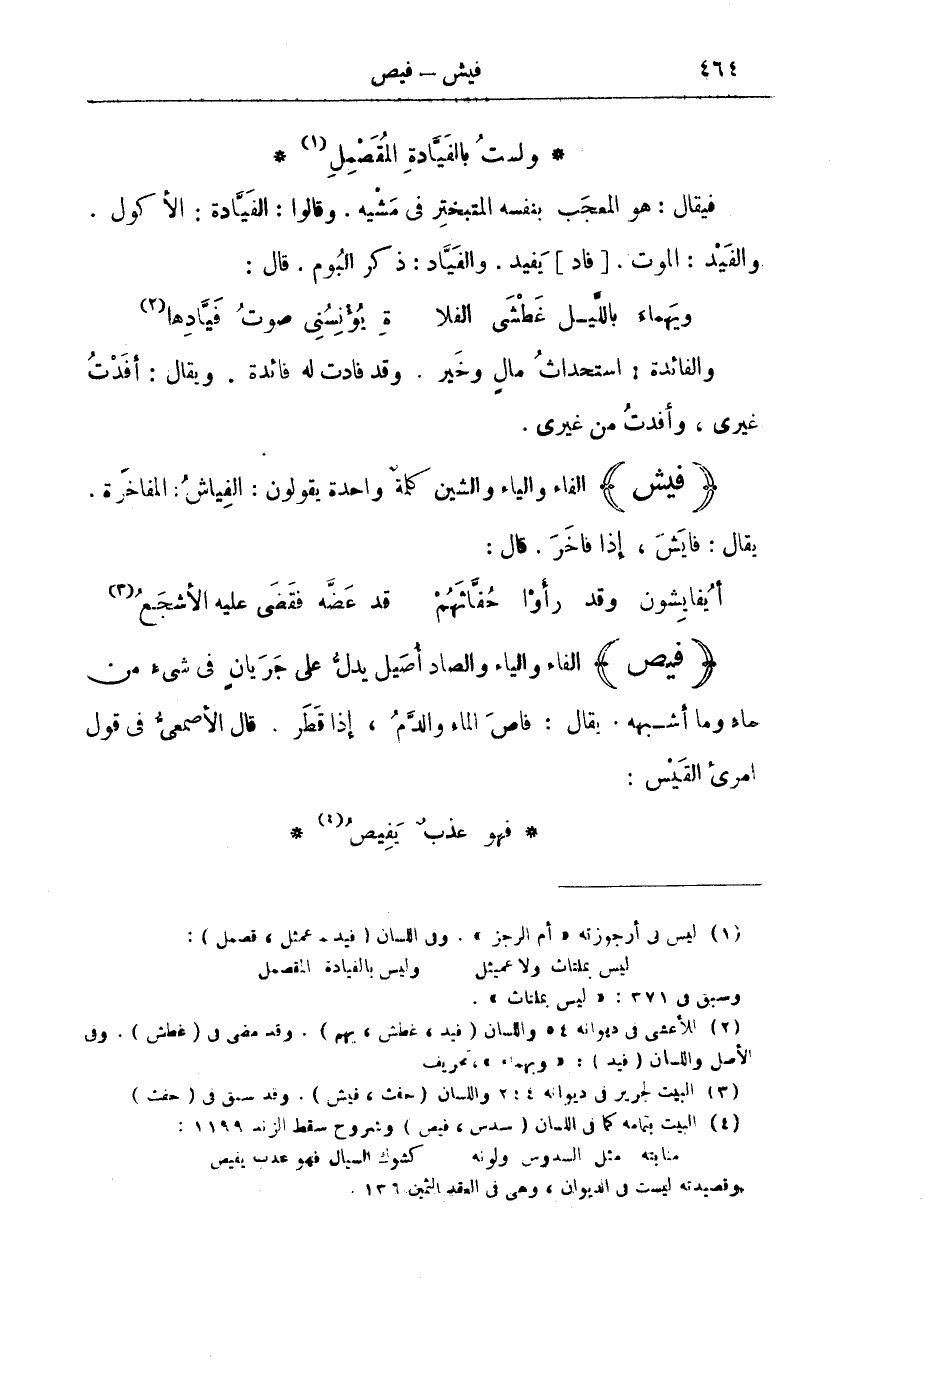 ٤٦٤
فيش – فيص
* ولستُ بالفَيَّادةِ المُقَصْمِلِ(١) *
فيقال : هو المعجَب بنفسه المتبختِر فى مَشْيه . وقالوا : الفَيَّادة : الأكول .
والفَيْد : الموت . [ فاد ] يَفيد . والفَيَّاد : ذكر البُوم . قال :
ويَهماء باللَّيـل غَطْشَى الفلا ةِ يُؤْنِسُنِى صوتُ فَيَّادِها(٢)
والفائدة : استحداثُ مالٍ وخَير . وقد فادت له فائدة . ويقال : أفَدْتُ
غيرى ، وأفدتُ من غيرى .
﴿ فيش ﴾ الفاء والياء والشين كلمةٌ واحدة يقولون : الفِياشُ : المفاخَرة .
يقال : فايَشَ ، إذا فاخَرَ . قال :
أيُفايِشون وقد رأَوْا حُفَّاثَهُمْ قد عَضَّه فقَضَى عليه الأشجَعُ(٣)
﴿ فيص ﴾ الفاء والياء والصاد أُصَيل يدلُّ على جَرَيانٍ فى شىء من
ماء وما أشـبهه . يقال : فاصَ الماء والدَّمُ ، إذا قَطَر . قال الأصمعىُّ فى قول
امرئ القَيْس :
* فهو عذبٌ يَفِيصُ(٤) *
(١) ليس فى أرجوزته « أم الرجز » . وفى اللسان ( فيد - عمثل ، قصمل ) :
ليس بملتاث ولا عميثل وليس بالفيادة المقصمل
وسبق فى ٣٧١ : « ليس بملتاث » .
(٢) للأعشى فى ديوانه ٥٤ واللسان ( فيد ، غطش ، يهم ) . وقد مضى فى ( غطش ) . وفى
الأصل واللسان ( فيد ) : « وبهماء » ، تحريف
(٣) البيت لجرير فى ديوانه ٢:٤ واللسان ( حفث ، فيش ) . وقد سبق فى ( حفث )
(٤) البيت بتمامه كما فى اللسان ( سدس ، فيص ) وشروح سقط الزند ١١٩٩ :
منابته مثل السدوس ولونه كشوك السيال فهو عذب يفيص
وقصيدته ليست فى الديوان ، وهى فى العقد الثمين ١٣٦ .